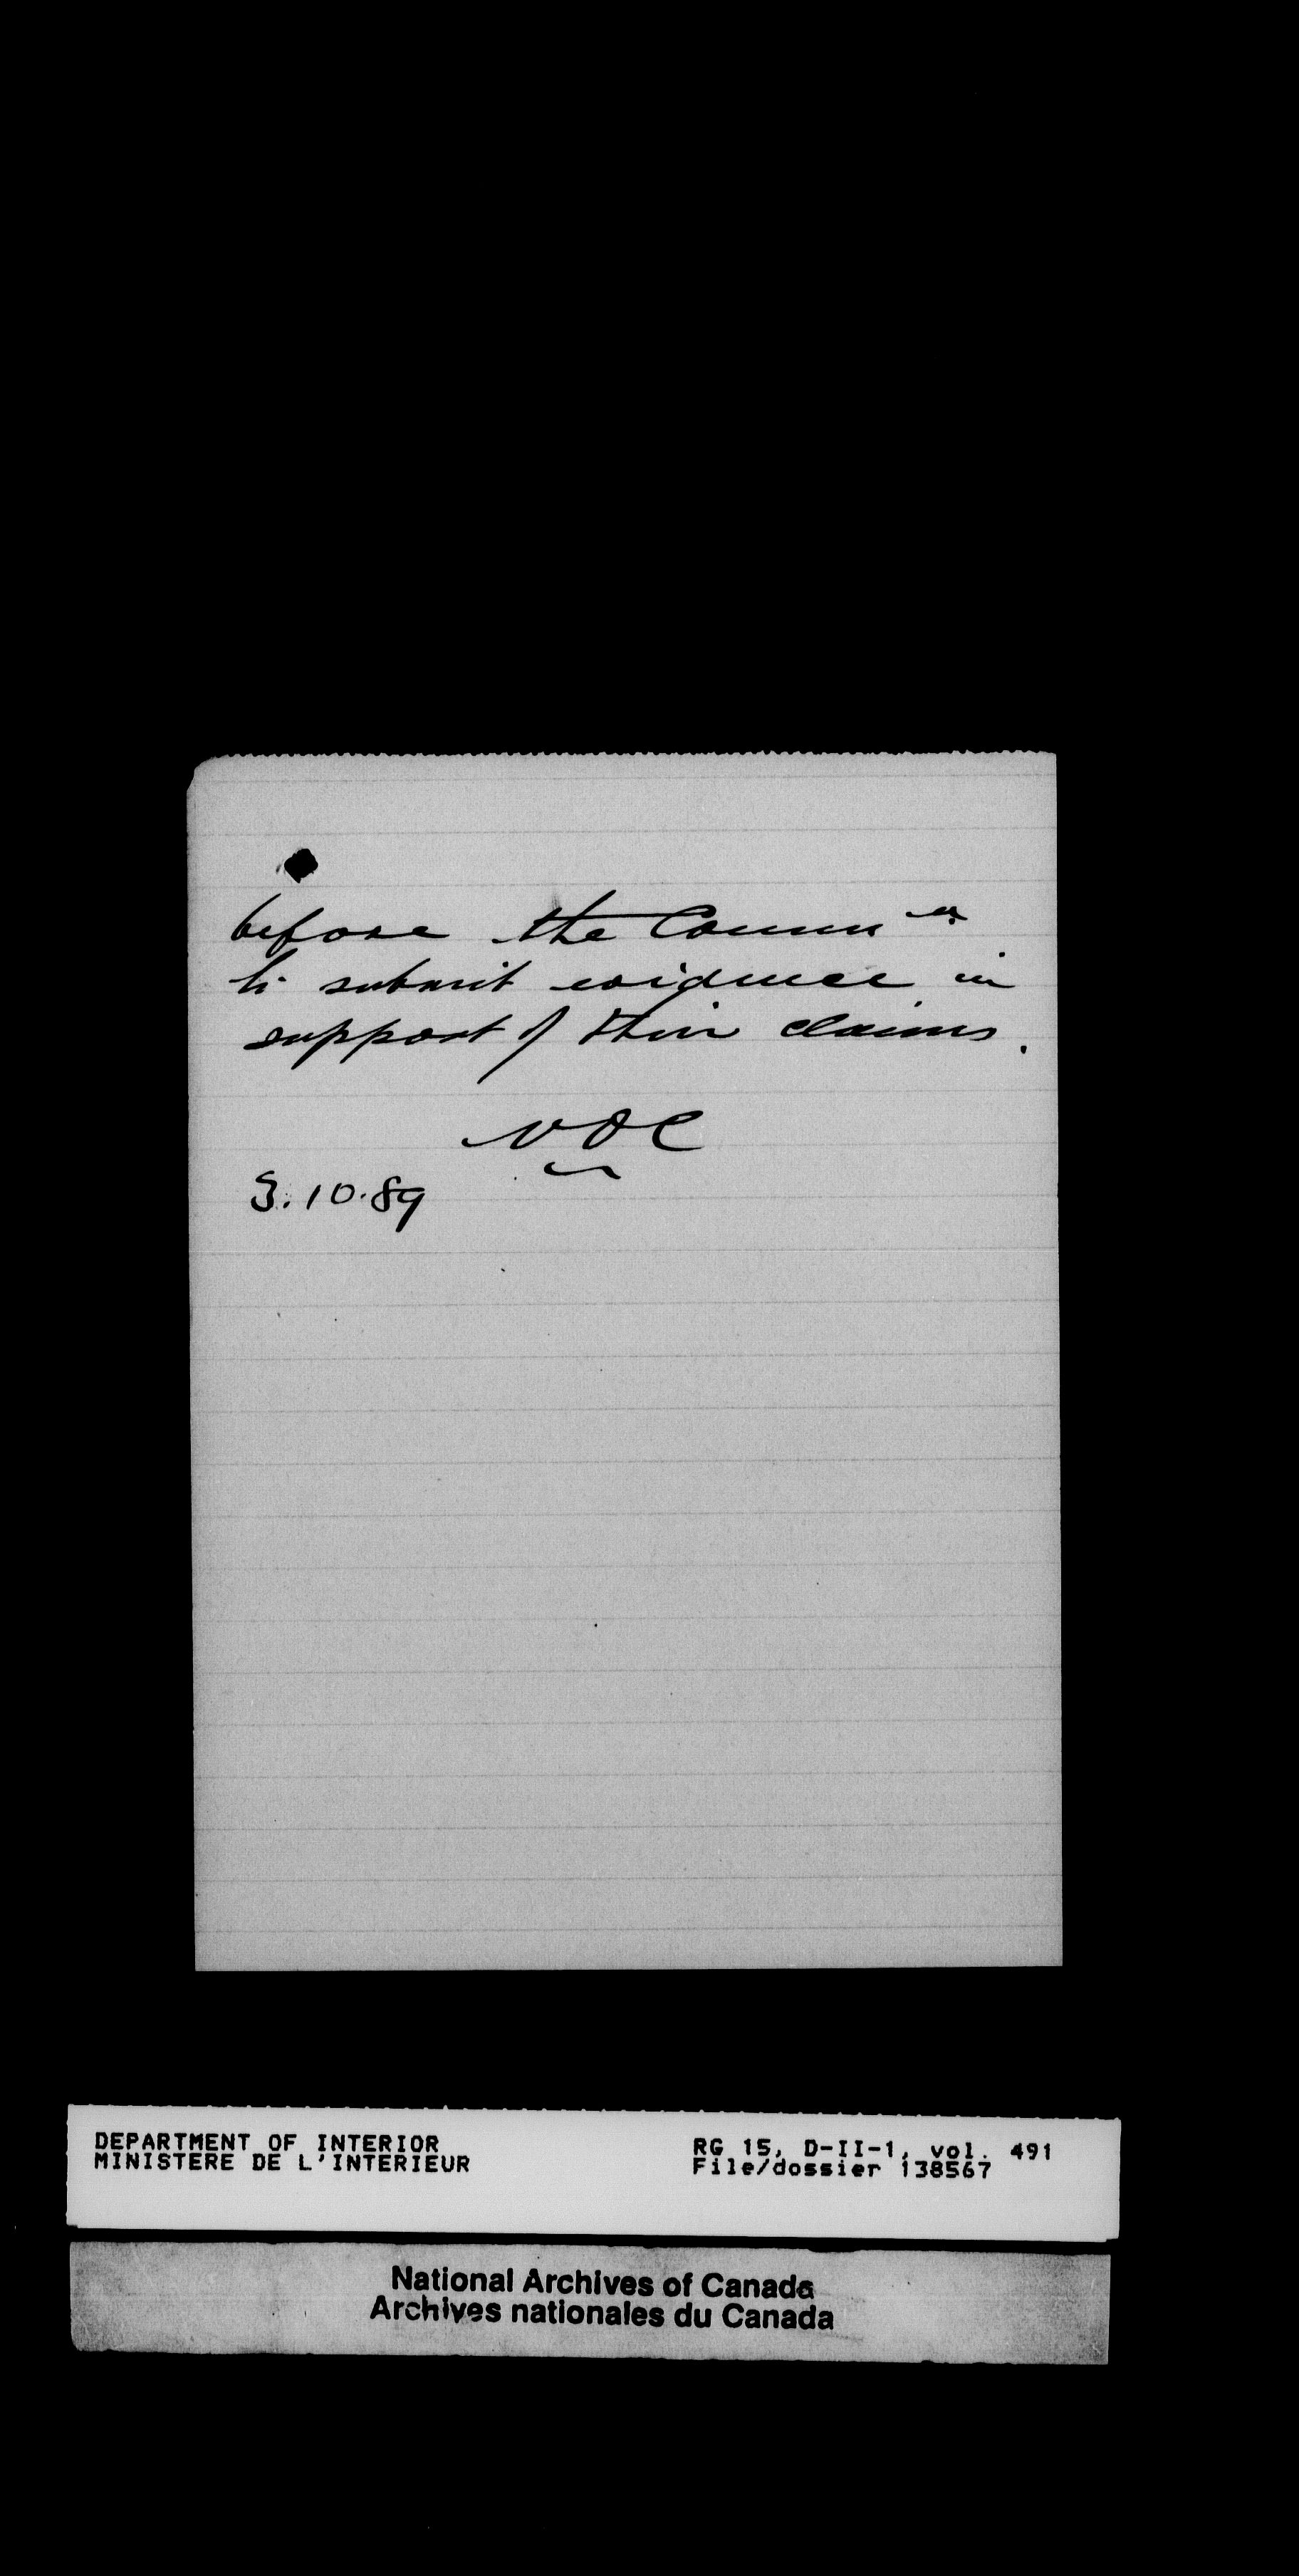 before the Comm<sup>er</sup>
to submit evidence in
support of their claims.
3.10.89
DEPARTMENT OF INTERIOR
MINISTERE DE L'INTERIEUR
RG 15, D-II-1, vol. 491
File/dossier 138567
National Archives of Canada
Archives nationales du Canada